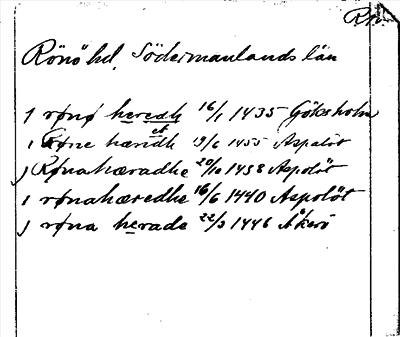 Rön
Rönö hd. Södermanlands län
J rønø heredh 16/1 1435 Göksholm
i Røne hæridh 19/6 1455 Aspalöt
j Rønahæradhe 20/10 1438 Aspolöt
i rønahæredhe 16/6 1440 Aspolöt
j røna herade 22/3 1446 Åkerö